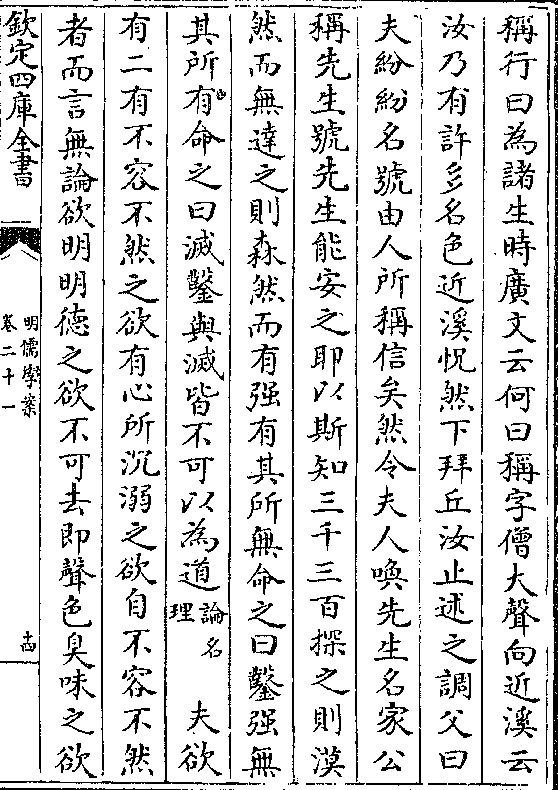 稱行曰為諸生時廣文云何曰稱字僧大聲向近溪云
汝乃有許多名色近溪怳然下拜丘汝止述之調父曰
夫紛紛名號由人所稱信矣然令夫人喚先生名家公
稱先生號先生能安之耶以斯知三千三百探之則漠
然而無達之則森然而有强有其所無命之曰鑿强無
其所有命之曰滅鑿與滅皆不可以為道論名理　夫欲
有二有不容不然之欲有心所沉溺之欲自不容不然
者而言無論欲明明德之欲不可去即聲色臭味之欲
欽定四庫全書
明儒學案
卷二十一
十四